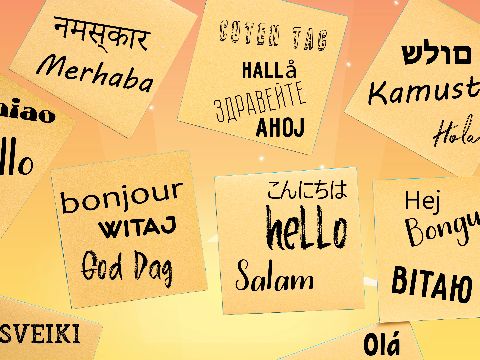 नमस्कार
Merhaba
GUYEN TAG
HALLå
ЗДРАВЕЙТЕ
AHOJ
םולש
Kamust
Hola
iao
llo
bonjour
WITAJ
God Dag
こんにちは
hello
Salam
Hej
Bongu
ВІТАЮ
SVEIKI
Olá